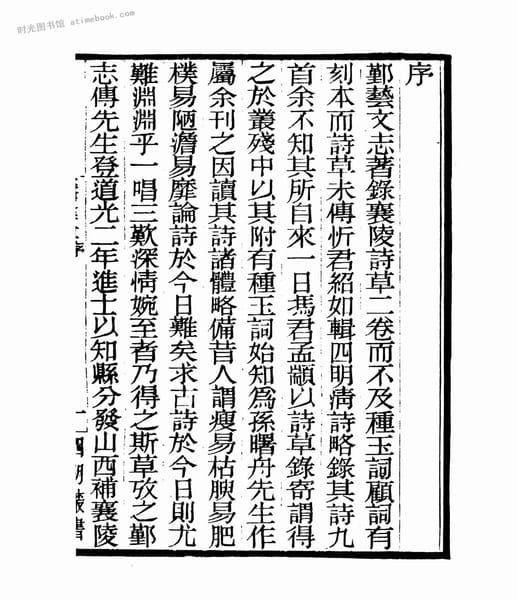 时光图书馆 atimebook.com
序
鄞藝文志著錄襄陵詩草二卷而不及種玉詞顧詞有
刻本而詩草未傳忻君紹如輯四明清詩略錄其詩九
首余不知其所自來一日馮君孟顓以詩草錄寄謂得
之於叢殘中以其附有種玉詞始知為孫曙舟先生作
屬余刊之因讀其詩諸體略備昔人謂瘦易枯腴易肥
樸易陋澹易靡論詩於今日難矣求古詩於今日則尤
難淵淵乎一唱三歎深情婉至者乃得之斯草攷之鄞
志傳先生登道光二年進士以知縣分發山西補襄陵
序
一 四明叢書